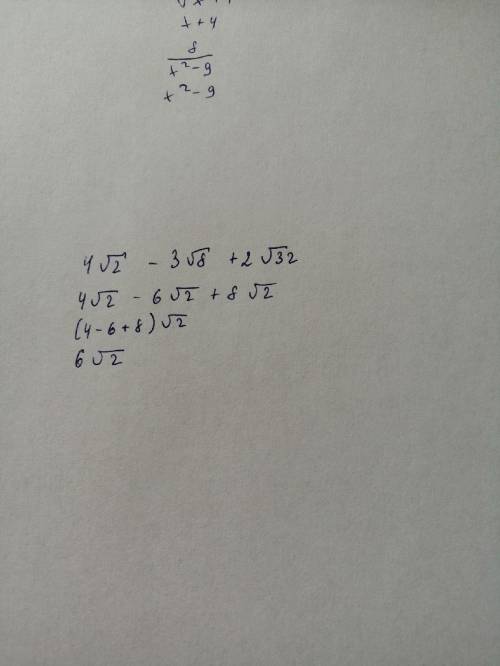 x+4
8
x²-9
x²-9
4√2 - 3√8 + 2√32
4√2 - 6√2 + 8√2
(4-6+8)√2
6√2